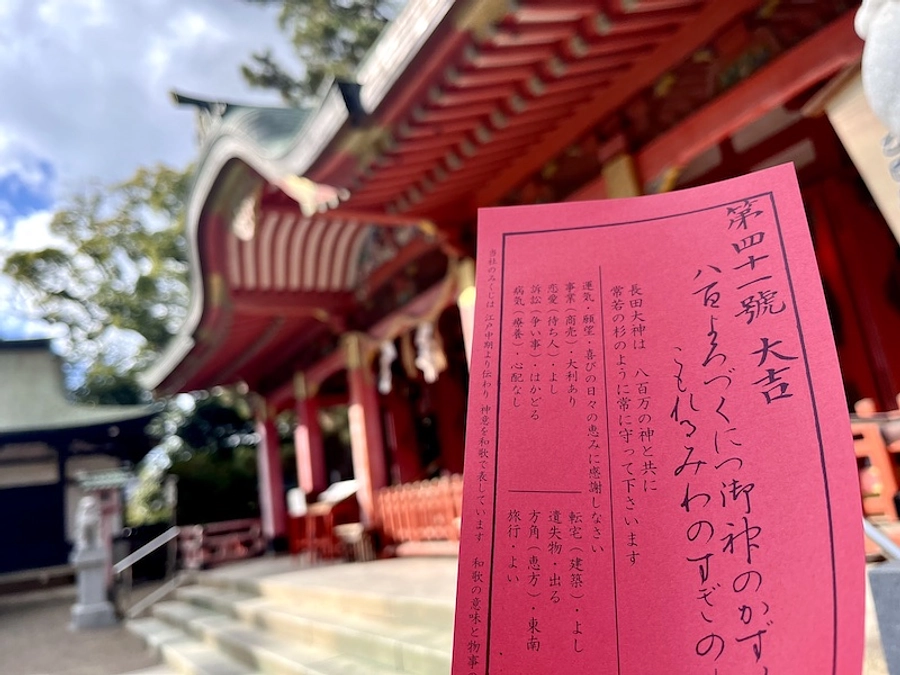 第四十一號 大吉
八百よろづくにつ御神のかず
こもれるみわのすぎの
長田大神は 八百万の神と共に
常若の杉のように常に守って下さいます
運気・願望・喜びの日々の恵みに感謝しなさい
事業(商売)・大利あり
恋愛(待ち人)・よし
訴訟(争い事)・はかどる
病気(療養)・心配なし
転宅(建築)・よし
遺失物・出る
方角(恵方)・東南
旅行・よい
当社のみくじは 江戸中期より伝わり 神意を和歌で表しています 和歌の意味と物事の